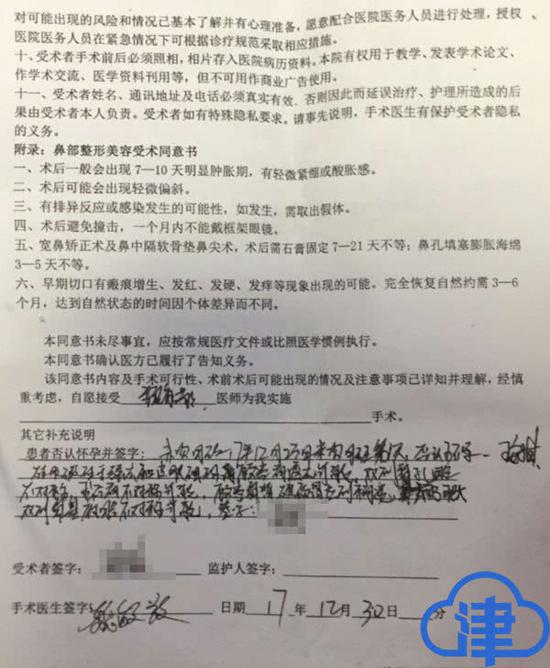 对可能出现的风险和情况已基本了解并有心理准备，愿意配合医院医务人员进行处理，授权
医院医务人员在紧急情况下可根据诊疗规范采取相应措施。
十、受术者手术前后必须照相，相片存入医院病历资料。本院有权用于教学、发表学术论文、
作学术交流、医学资料刊用等，但不可用作商业广告使用。
十一、受术者姓名、通讯地址及电话必须真实有效、否则因此而延误治疗、护理所造成的后
果由受术者本人负责。受术者如有特殊隐私要求，请事先说明，手术医生有保护受术者隐私
的义务。
附录：鼻部整形美容受术同意书
一、术后一般会出现 7—10 天明显肿胀期，有轻微紧绷或酸胀感。
二、术后可能会出现轻微偏斜。
三、有排异反应或感染发生的可能性，如发生，需取出假体。
四、术后避免撞击，一个月内不能戴框架眼镜。
五、宽鼻矫正术及鼻中隔软骨垫鼻尖术，术后需石膏固定 7—21 天不等；鼻孔填塞膨胀海绵
3—5 天不等。
六、早期切口有瘢痕增生、发红、发硬、发痒等现象出现的可能。完全恢复自然约需 3—6
个月，达到自然状态的时间因个体差异而不同。
本同意书未尽事宜，应按常规医疗文件或比照医学惯例执行。
本同意书确认医方已履行了告知义务。
该同意书内容及手术可行性、术前术后可能出现的情况及注意事项已详知并理解，经慎
重考虑，自愿接受 医师为我实施
手术。
其它补充说明
患者否认怀孕并签字：
受术者签字： 监护人签字：
手术医生签字： 日期 17 年 12 月 30 日 分
津